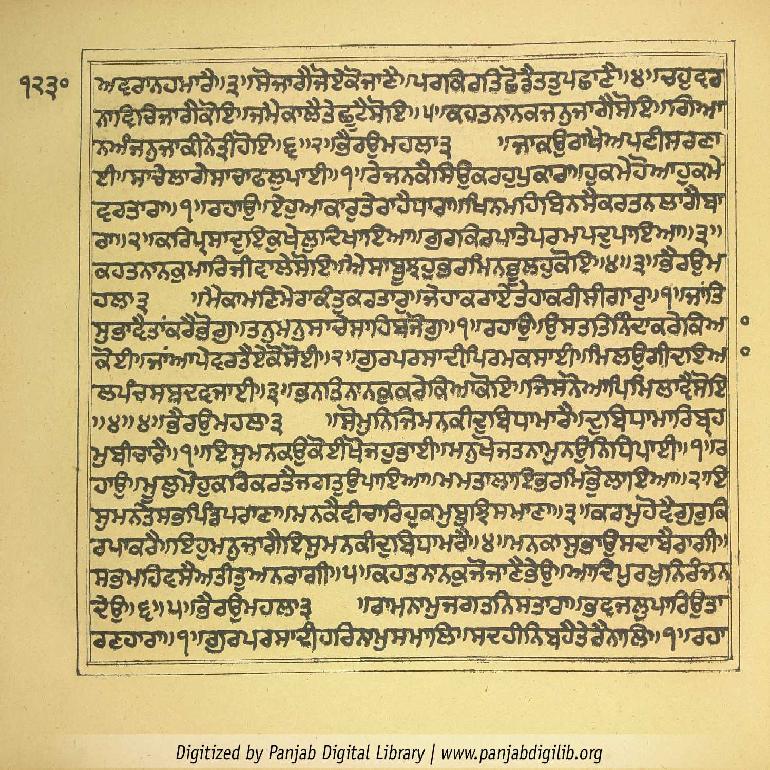 ੧੨੩੦
ਅਵਰਾਨਹਮਾਰੈ॥੩॥ਸੋਜਾਗੈਜੋਏਕੋਜਾਣੈ॥ਪਰਕਿਰਤਿਛੋਡੈਤਤੁਪਛਾਣੈ॥੪॥ਚਹੁਵਰ
ਨਾਵਿਚਿਜਾਗੈਕੋਇ॥ਜਮੈਕਾਲੈਤੇਛੂਟੈਸੋਇ॥੫॥ਕਹਤਨਾਨਕਜਨੁਜਾਗੈਸੋਇ॥ਗਿਆ
ਨਅੰਜਨੁਜਾਕੀਨੇਤ੍ਰੀਹੋਇ॥੬॥੨॥ਭੈਰਉਮਹਲਾ੩ ॥ਜਾਕਉਰਾਖੈਅਪਣੀਸਰਣਾ
ਈ॥ਸਾਚੇਲਾਗੈਸਾਚਾਫਲੁਪਾਈ॥੧॥ਰੇਜਨਕੈਸਿਉਕਰਹੁਪੁਕਾਰਾ॥ਹੁਕਮੇਹੋਆਹੁਕਮੇ
ਵਰਤਾਰਾ॥੧॥ਰਹਾਉ॥ਏਹੁਆਕਾਰੁਤੇਰਾਹੈਧਾਰਾ॥ਖਿਨਮਾਹਿਬਿਨਸੈਕਰਤਨਲਾਗੈਬਾ
ਰਾ॥੨॥ਕਰਿਪ੍ਰਸਾਦੁਇਕੁਖੇਲੁਦਿਖਾਇਆ॥ਗੁਰਕਿਰਪਾਤੇਪਰਮਪਦੁਪਾਇਆ॥੩॥
ਕਹਤਨਾਨਕੁਮਾਰਿਜੀਵਾਲੇਸੋਇ॥ਐਸਾਬੂਝਹੁਭਰਮਿਨਭੂਲਹੁਕੋਇ॥੪॥੩॥ਭੈਰਉਮ
ਹਲਾ੩ ॥ਮੈਕਾਮਣਿਮੇਰਾਕੰਤੁਕਰਤਾਰੁ॥ਜੇਹਾਕਰਾਏਤੇਹਾਕਰੀਸੀਗਾਰੁ॥੧॥ਜਾਂਤਿ
ਸੁਭਾਵੈਤਾਂਕਰੈਭੋਗੁ॥ਤਨੁਮਨੁਸਾਚੇਸਾਹਿਬਜੋਗੁ॥੧॥ਰਹਾਉ॥ਉਸਤਤਿਨਿੰਦਾਕਰੇਕਿਅ
ਕੋਈ॥ਜਾਂਆਪੇਵਰਤੈਏਕੋਸੋਈ॥੨॥ਗੁਰਪਰਸਾਦੀਪਿਰਮਕਸਾਈ॥ਮਿਲਉਗੀਦਇਅ
ਲਪੰਚਸਬਦਵਜਾਈ॥੩॥ਭਨਤਿਨਾਨਕੁਕਰੇਕਿਆਕੋਇ॥ਜਿਸਨੋਆਪਿਮਿਲਾਵੈਸੋਇ
॥੪॥੪॥ਭੈਰਉਮਹਲਾ੩ ॥ਸੋਮੁਨਿਜਿਮਨਕੀਦੁਬਿਧਾਮਾਰੈ॥ਦੁਬਿਧਾਮਾਰਿਬ੍ਰਹ
ਮੁਬੀਚਾਰੈ॥੧॥ਇਸੁਮਨਕਉਕੋਈਖੋਜਹੁਭਾਈ॥ਮਨੁਖੋਜਤਨਾਮੁਨਉਨਿਧਿਪਾਈ॥੧॥ਰ
ਹਾਉ॥ਮੂਲੁਮੋਹੁਕਰਿਕਰਤੈਜਗਤੁਉਪਾਇਆ॥ਮਮਤਾਲਾਇਭਰਮਿਭੋੁਲਾਇਆ॥੨॥ਇ
ਸੁਮਨਤੇਸਭਪਿੰਡਪਰਾਣਾ॥ਮਨਕੈਵੀਚਾਰਿਹੁਕਮੁਬੁਝਿਸਮਾਣਾ॥੩॥ਕਰਮੁਹੋਵੈਗੁਰੁਕਿ
ਰਪਾਕਰੈ॥ਇਹੁਮਨੁਜਾਗੈਇਸੁਮਨਕੀਦੁਬਿਧਾਮਰੈ॥੪॥ਮਨਕਾਸੁਭਾਉਸਦਾਬੈਰਾਗੀ॥
ਸਭਮਹਿਵਸੈਅਤੀਤੁਅਨਰਾਗੀ॥੫॥ਕਹਤਨਾਨਕੁਜੋਜਾਣੈਭੇਉ॥ਆਦਿਪੁਰਖੁਨਿਰੰਜਨ
ਦੇਉ॥੬॥੫॥ਭੈਰਉਮਹਲਾ੩ ॥ਰਾਮਨਾਮੁਜਗਤਨਿਸਤਾਰਾ॥ਭਵਜਲੁਪਾਰਿਉਤਾ
ਰਣਹਾਰਾ॥੧॥ਗੁਰਪਰਸਾਦੀਹਰਿਨਾਮੁਸਮਾਲਿ॥ਸਦਹੀਨਿਬਹੈਤੇਰੈਨਾਲਿ॥੧॥ਰਹਾ
Digitized by Panjab Digital Library | www.panjabdigilib.org